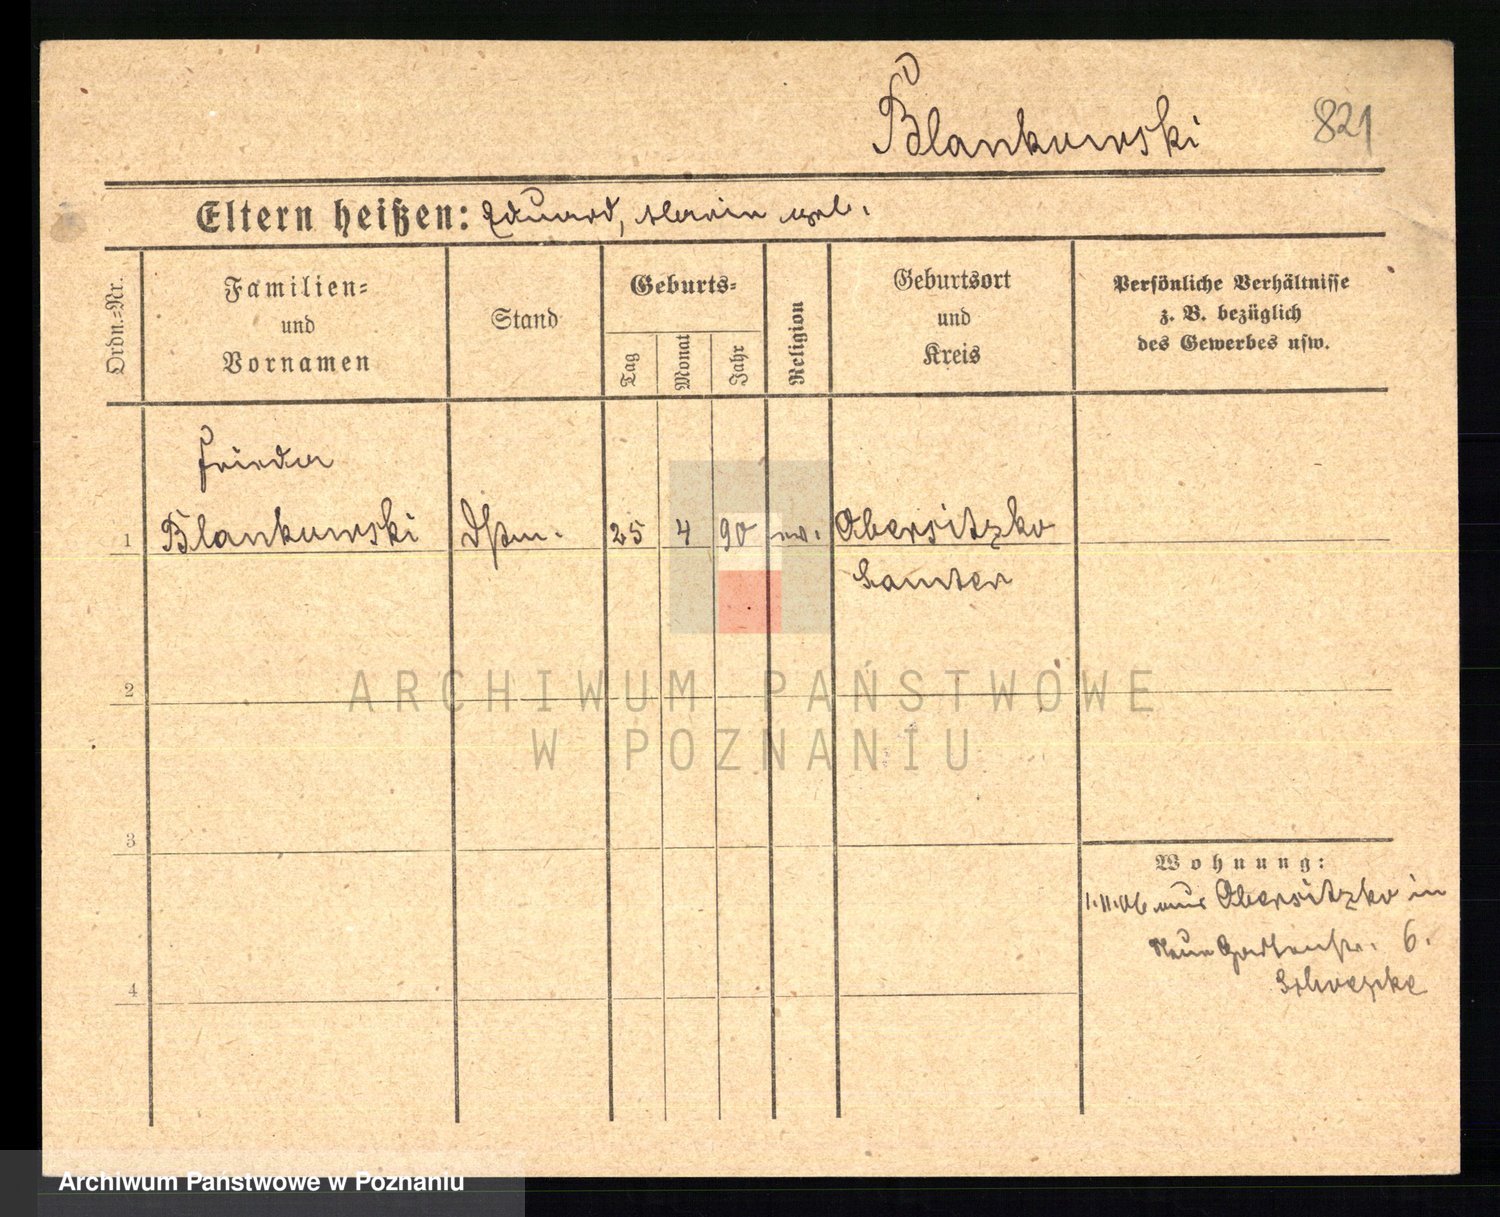 Blankowski
821
Eltern heißen: Eduard, Marie geb.
Ordn.=Nr.
Familien=
und
Vornamen
Stand
Geburts=
Tag
Monat
Jahr
Religion
Geburtsort
und
Kreis
Persönliche Verhältnisse
z. B. bezüglich
des Gewerbes usw.
Frieda
1 Blankowski Dstm. 25 4 90 ev. Obersitzko
Samter
2
3
4
Wohnung:
1.11.06 aus Obersitzko in
Neue Gartenstr. 6.
ARCHIWUM PAŃSTWOWE
W POZNANIU
Archiwum Państwowe w Poznaniu